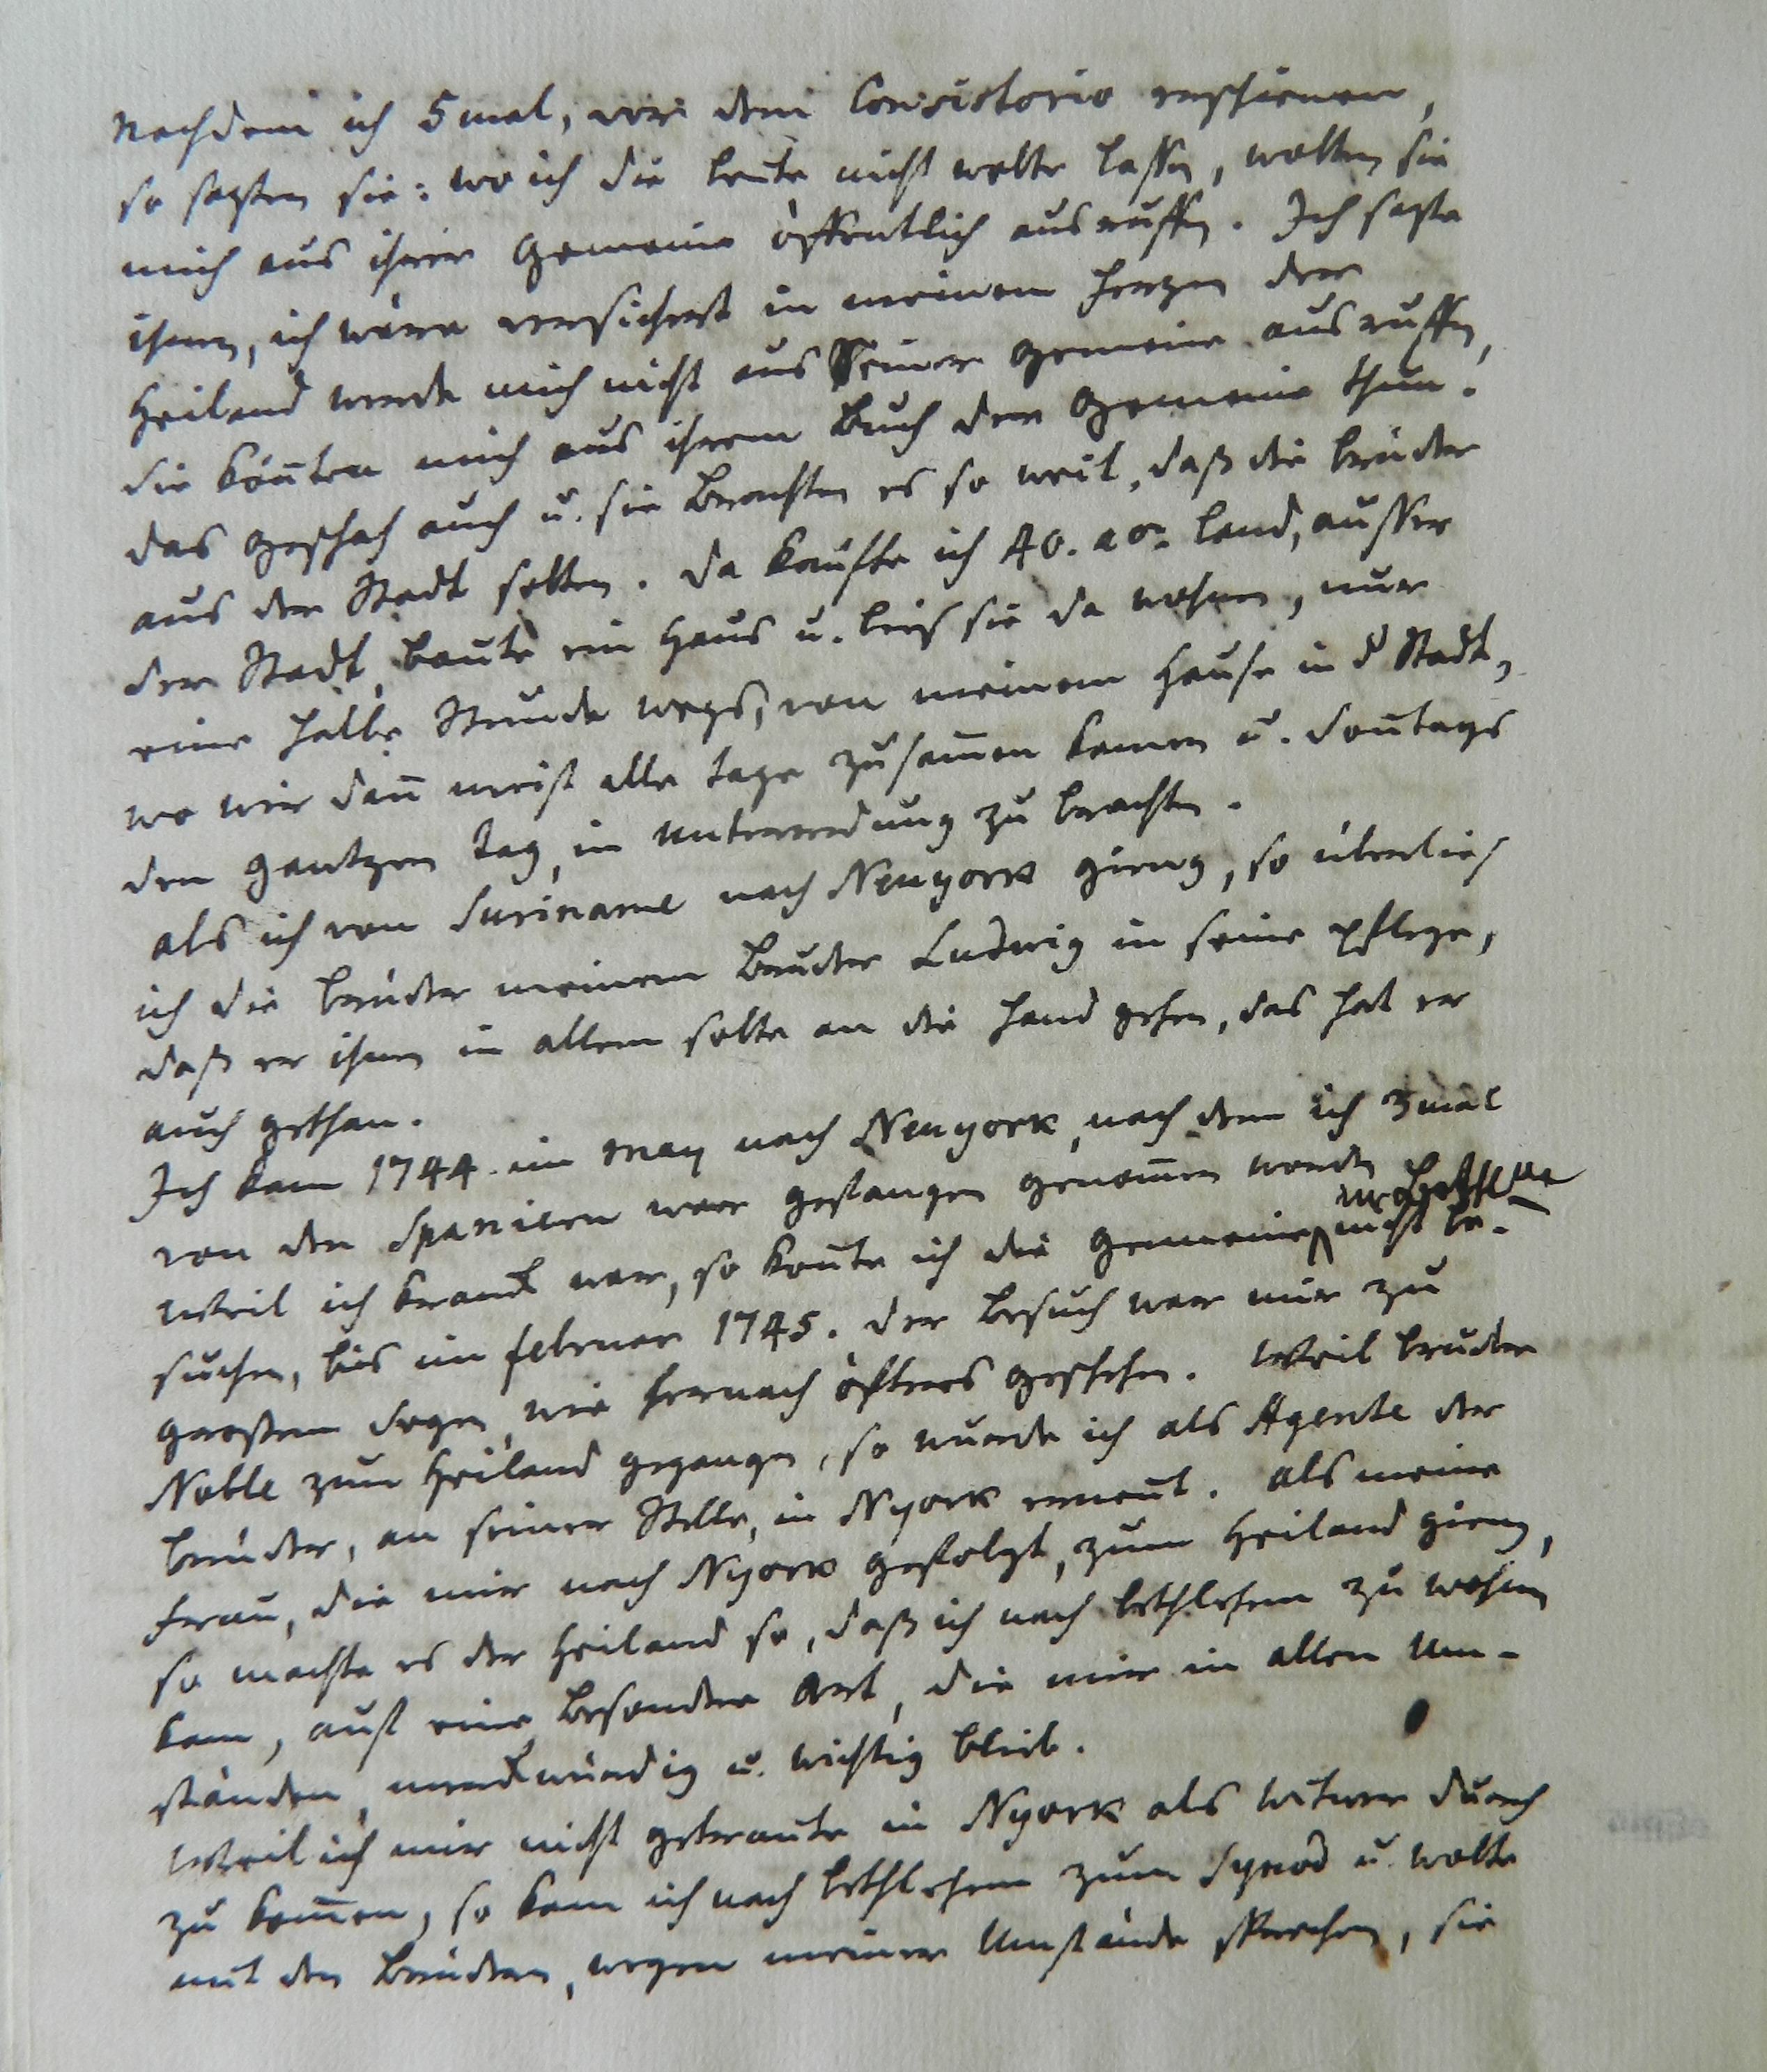 Nachdem ich 5 mal, vor dem Consistorio erschienen,
so sagten sie: wo ich die Leute nicht wolte lassen, wolten sie
mich aus ihrer Gemeine öffentlich ausruffen. Ich sagte
ihnen, ich wäre versichert in meinem Herzen der
Heiland werde mich nicht aus Seiner Gemeine ausruffen,
die könten mich aus ihrem Buch der Gemeine thun.
das geschah auch u. sie brachten es so weit, daß die brüder
aus der Stadt solten. da kaufte ich 40. acr. Land, ausser
der Stadt, baute ein Haus u. lies sie da wohnen, nur
eine halbe Stunde wegs, von meinem Hause in d Stadt,
wo wir dan̄ meist alle tage zusam̄en kamen u. Son̄tags
den gantzen tag, in Unterredung zu brachten.
als ich von Suriname nach Neuyork gieng, so überlies
ich die brüder meinem Bruder Ludwig in seine pflege,
daß er ihnen in allem solte an die Hand gehen, das hat er
auch gethan.
Ich kam 1744. im may nach Neuyork, nach dem ich 3 mal
von den Spaniern war gefangen genom̄en worden
Weil ich kranck war, so kon̄te ich die Gemeine in Bethlehem nicht be-
suchen, bis im februar 1745. der besuch war mir zu
grossem Segen, wie hernach öfters geschehen. Weil bruder
Noble zum Heiland gegangen, so wurde ich als Agente der
brüder, an seiner Stelle, in Nyork ernent. Als meine
Frau, die mir nach Nyork gefolgt, zum Heiland gieng,
so machte es der Heiland so, daß ich nach bethlehem zu wohnen
kam, auf eine besondere Art, die mir in allen Um-
ständen, merckwürdig u. wichtig blieb.
Weil ich mir nicht getraute in Nyork als witwer durch
zu kom̄en, so kam ich nach bethlehem zum Synod u. wolte
mit den Brüdern, wegen meiner Umstände sprechen, sie